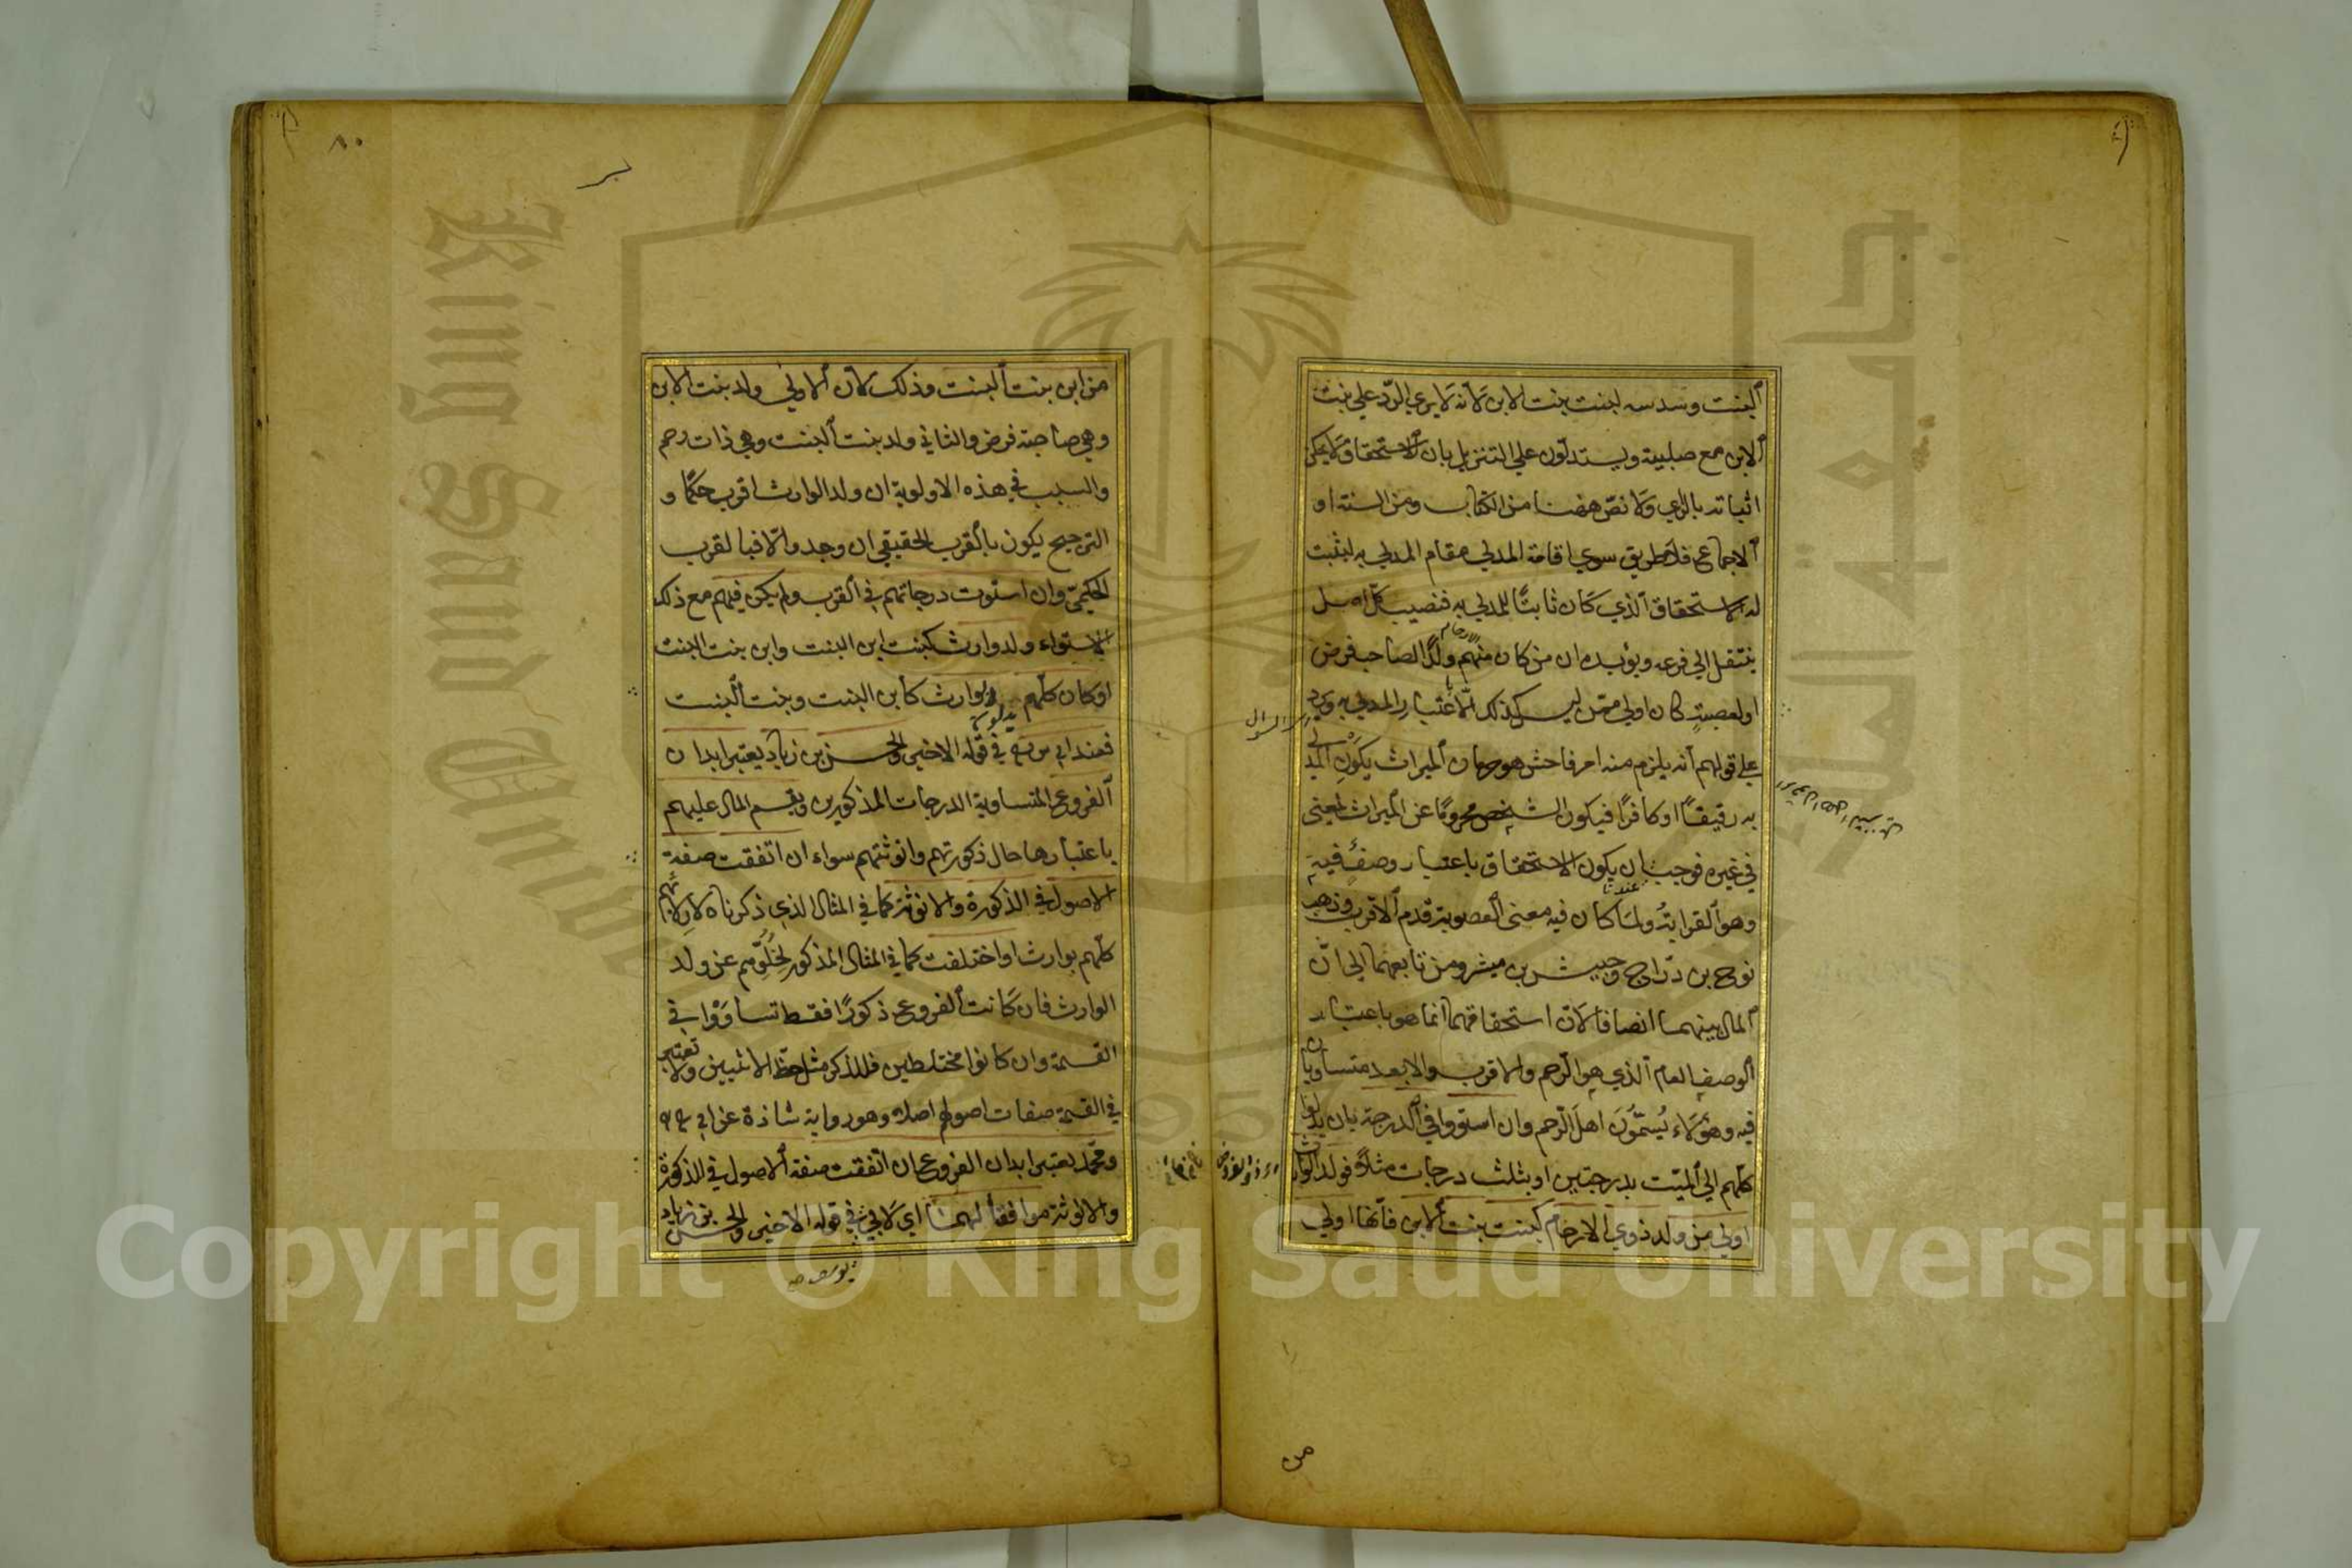 ألبنت وسدسه لبنت بنت الابن لأنه لا يرى الرّد على بنت
ألابن مع صلبية ويستدلون على التنزيل بان ألاستحقاق لا يمكن
اثباته بالرأي ولا نصّ ههنا من الكتاب ومن السنة او
ألاجماع فلا طريق سوى اقامة المدلي مقام المدلى به ليثبت
له الاستحقاق ألذي كان ثابتًا للمدلى به فنصيب كلّ اصل
ينتقل الى فرعه ويؤيده ان من كان منهم ولدًا لصاحب فرض
الارحام
او لعصبةٍ كان اولى ممّن ليس كذلك الّا باعتبار المدلى به ويرد
على قولهم أنه يلزم منه امر فاحش هو حرمان ألميراث بكون المدلى
به رقيقاً او كافرًا فيكون الشخص محرومًا عن الميراث لمعنى
في غيره فوجب ان يكون الاستحقاق باعتبار وصفٍ فيه
وهو ألقرابة ولما كان فيه معنى ألعصوبة قدم ألاقرب وذهب
عندنا
نوح بن درّاج وحبيش بن ميشر ومن تابعهما الى انّ
ألمال بينهما انصافا لأن استحقاقهما انما هو باعتبار
ألوصف العام ألذي هو الرّحم والاقرب والابعد متساويان
فيه وهؤلاء يُسَمّوْنَ اهل الرّحم وان استووا في ألدرجة بان يدلوا
كلّهم الى ألميّت بدرجتين او بثلث درجات مثلاً فولد الوارث
اولى من ولد ذوي الارحام كبنت بنت ألابن فأنها اولى
من
٨٠
من ابن بنت ألبنت وذلك لأن ألاولى ولد بنت الابن
وهي صاحبة فرض والثاني ولد بنت ألبنت وهي ذات رحم
والسبب في هذه الاولوية ان ولد الوارث اقرب حكمًا و
الترجيح يكون بألقرب الحقيقي ان وجد والّا فبالقرب
الحكميّ وان استوت درجاتهم في ألقرب ولم يكن فيهم مع ذلك
الاستواء ولد وارث كبنت ابن البنت وابن بنت البنت
او كان كلّهم بوارث كأبن البنت وبنت ألبنت
فعند ابي يوسف في قوله الاخير والحسن بن زياد يعتبر ابدان
ألفروع المتساوية الدرجات المذكورين ويقسم المال عليهم
باعتبارها حال ذكورتهم وانوثتهم سواء ان اتفقت صفة
الاصول في الذكورة والانوثة كما في المثال الذي ذكرناه لاولانهم
كلّهم بوارث او اختلفت كما في المثال المذكور لخُلُوِّهم عن ولد
الوارث فان كانت ألفروع ذكورًا فقط تساوَوْا في
القسمة وان كانوا مختلطين فللذكر مثل حظّ الانثيين ولا تعتبر
في القسمة صفات اصولهم اصلاً وهو رواية شاذة عن ابي
ومحمّد يعتبر ابدان الفروع ان اتفقت صفة ألاصول في الذكورة
والانوثة موافقاً لهما اي لابي في قوله الاخير والحسن بن زياد
يوسف صح